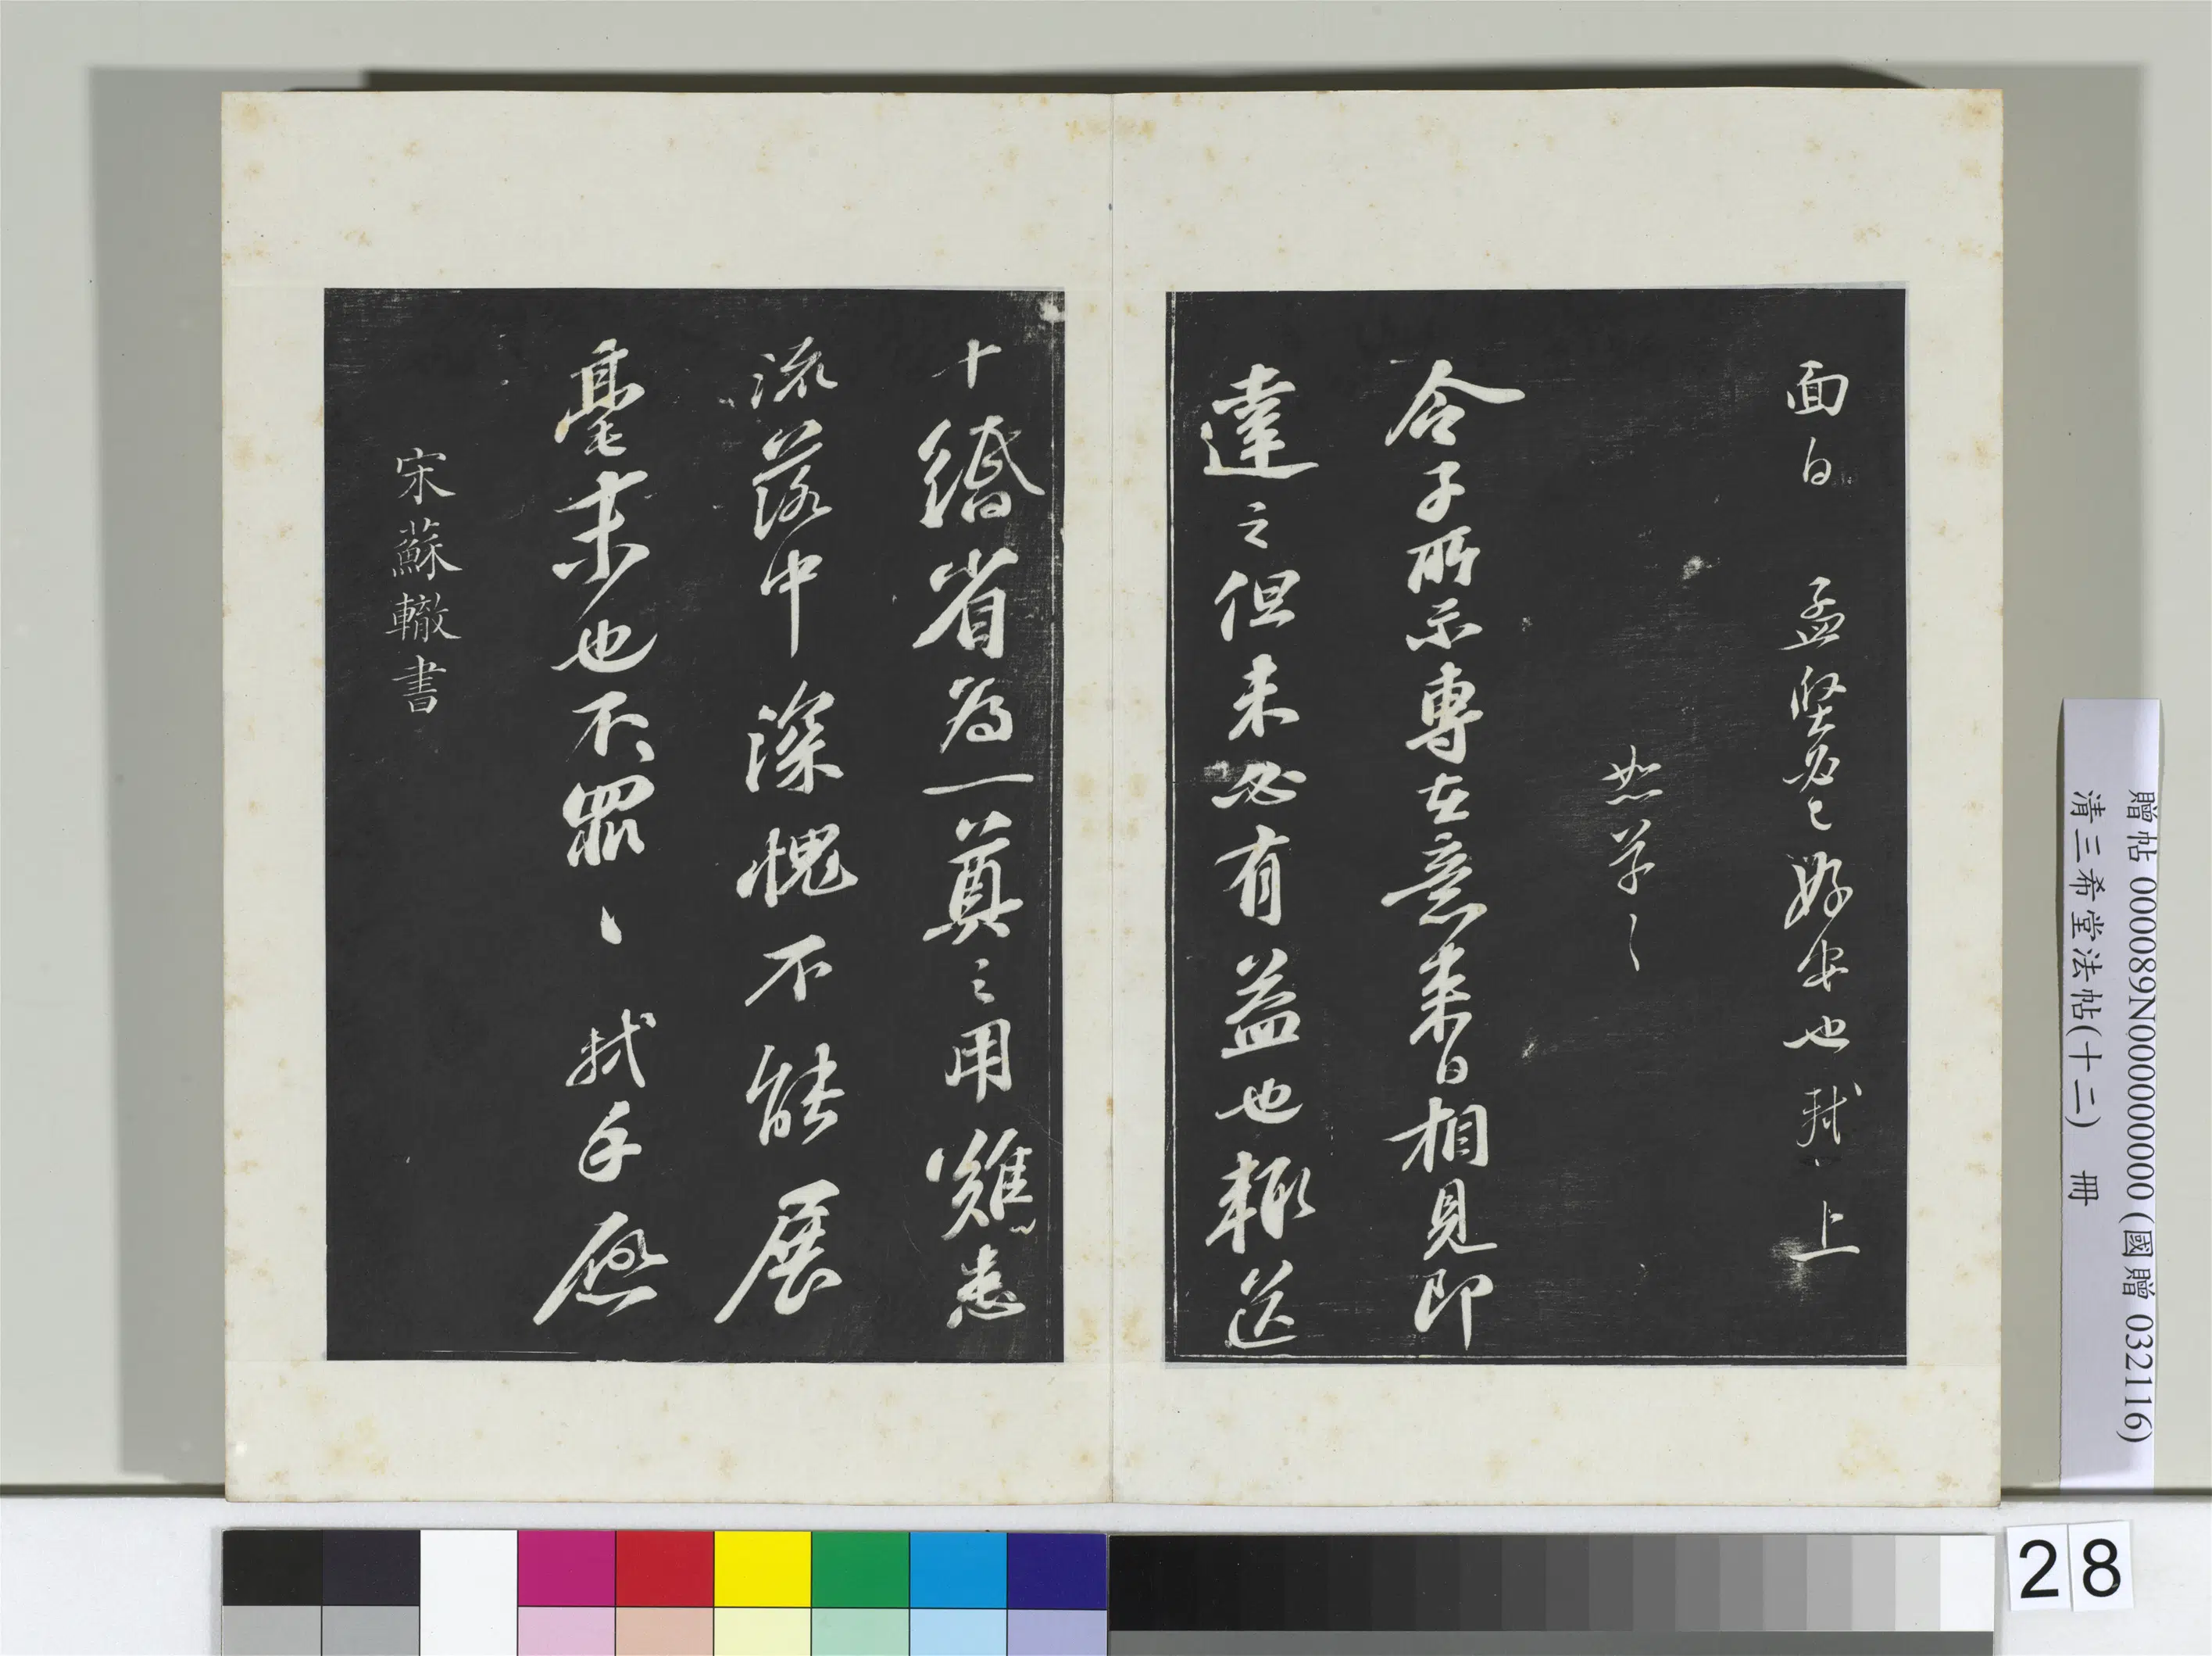 面白 孟堅必已好安也軾上
恕草々
令子所示專在意來日相見即
達之但未必有益也輒送
十縑省為一奠之用難患
流落中深愧不能展
毫末也不罪々軾手啟
宋蘇轍書
贈帖 000089N000000000 (國贈 032116)
清三希堂法帖(十二) 冊
28